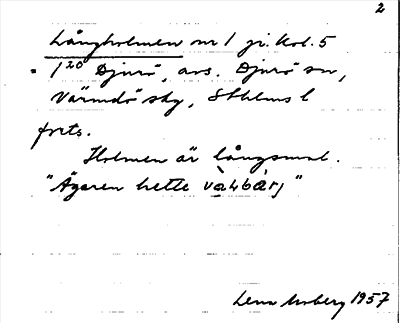 2
Långholmen nr 1 ji. kol. 5
= 1²⁰ Djurö, avs. Djurö sn,
Värmdö skg, Sthlms l
forts.
Holmen är långsmal.
"Ägaren hette
Lena Moberg 1957